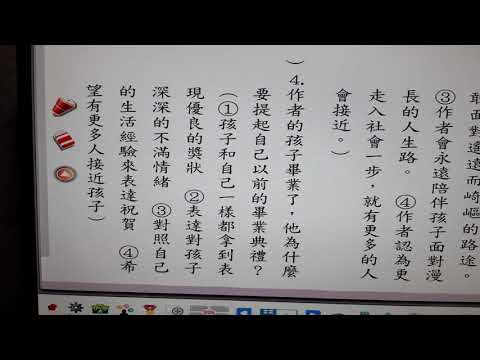 敢面對遙遠而崎嶇的路途。
③作者會永遠陪伴孩子面對漫
長的人生路。　④作者認為更
走入社會一步，就有更多的人
會接近。）
（　）4.作者的孩子畢業了，他為什麼
要提起自己以前的畢業典禮？
（①孩子和自己一樣都拿到表
現優良的獎狀　②表達對孩子
深深的不滿情緒　③對照自己
的生活經驗來表達祝賀　④希
望有更多人接近孩子）